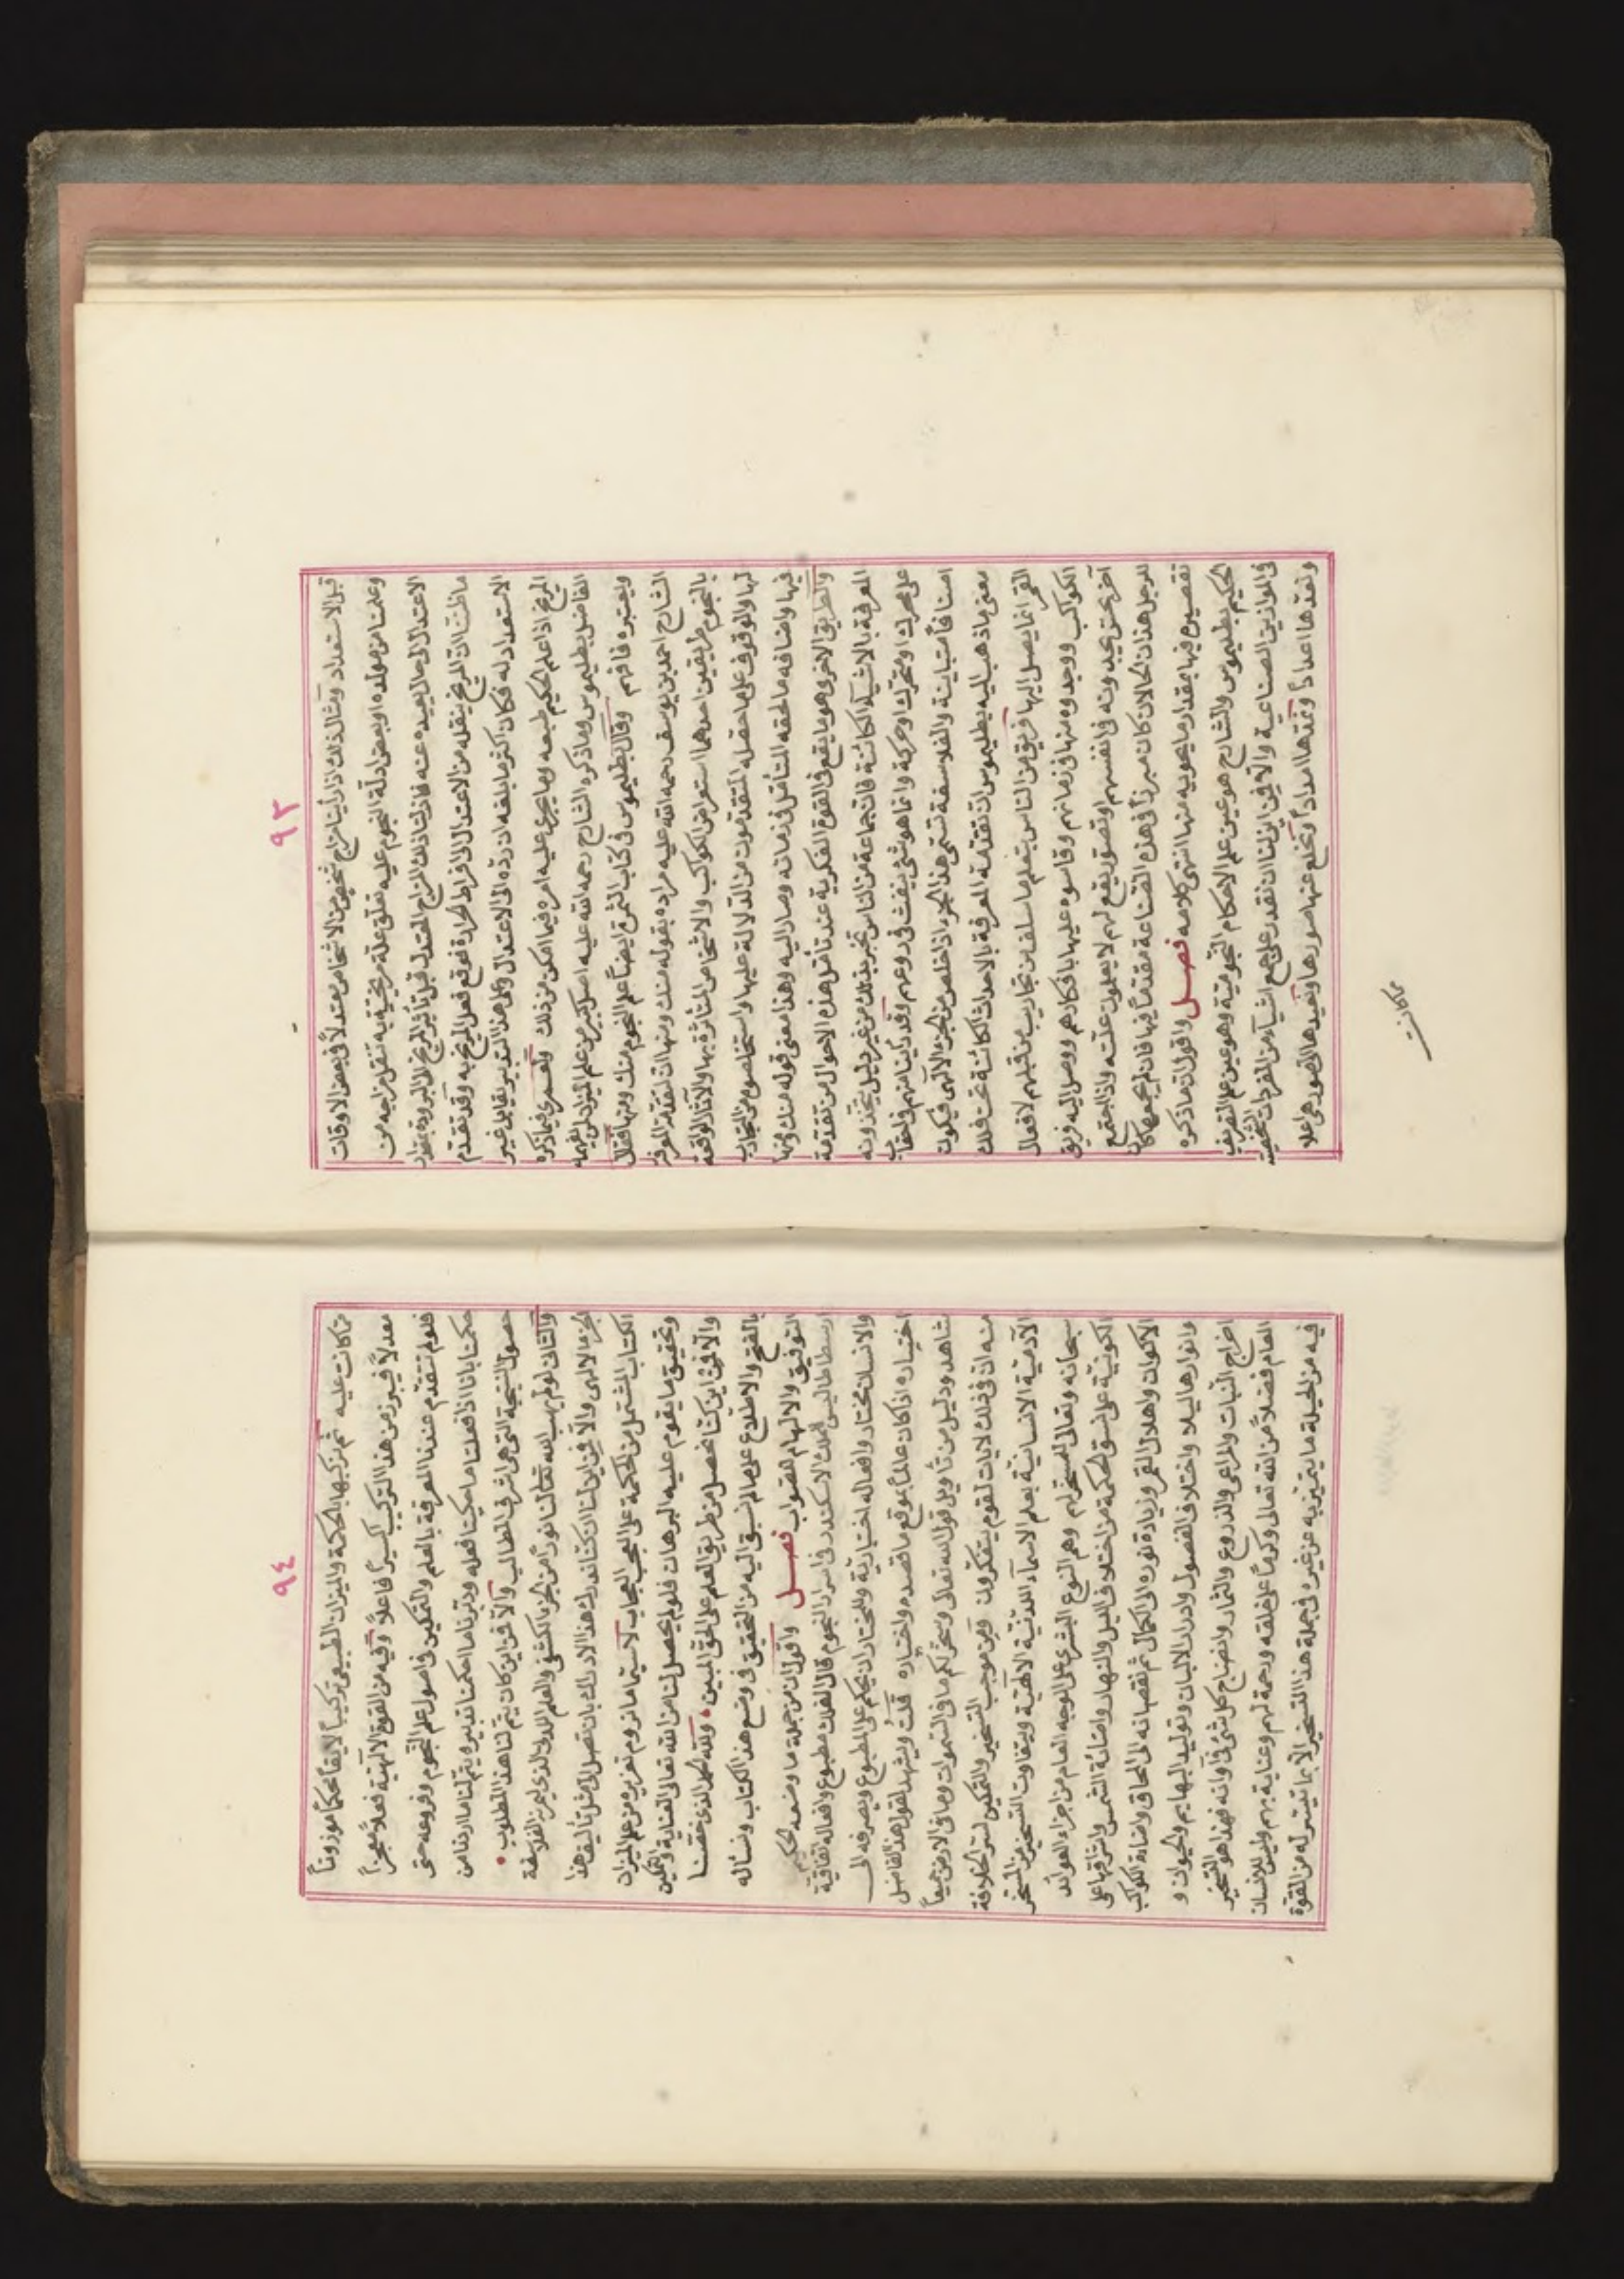 ٩٣
قبل الاستعداد ومثال ذلك اذا رأينا مزاج شخص من الاشخاص معتدلاً في بعض الاوقات
وعلمنا من مولده او بعض ادلة النجوم عليه تعلق علة مريخية به تنقل مزاجه من
الاعتدال الى حال بعيدة عنه فاذا شاذلك المزاج المعتدل قبل تأثير المريخ الى البرودة بمقدار
ما ظننا ان المريخ ينقله من الاعتدال الى الافراط الحرارة فوقع فعل المريخ به وقد تقدم
الاستعداد له فكان اكثر ما بلغه ان رده الى الاعتدال وكل هذا التدبير يقابل غير
المريخ اذا علم الحكيم طبعه وما يجري عليه امره فيما امكن من ذلك ولعمري فيما ذكره
الفاضل بطليموس وما ذكره الشارح رحمه الله عليه اصل كبير من علم الميزان لمن يفهمه
ويعتبره فافهم وقال بطليموس في كتاب الثمرة ايضاً علم النجوم منك ومنها فقال
الشارح احمد بن يوسف رحمه الله عليه مراده بقوله منك ومنها ان لتقدمة المعرفة
بالنجوم طريقين احدهما استعراض الكواكب والاشخاص المتأثرة بها والآثار الواقعة
لها والوقوف على ما حصله المتقدمون من الدلالة عليها واستخلصوه من التجارب
فيها واضافه ما لحقه المتأمل في زمانه وصار اليه وهذا معنى قوله منك ومنها
والطريق الاخرى هو ما يقع في القوة الفكرية عند تأمل هذه الاحوال من تقدمة
المعرفة بالاشياء الكائنة فان جماعة من الناس تخبر بذلك من غير دليل يتخذونه
على محرك او متحرك او حركة وانما هو شئ ينفث في روعهم وقد رأينا منهم في احقاب
اصنافاً متباينة والفلاسفة تسمى هذا الجزء اذا خلص من الجزء الالهي فيكون
معنى ما ذهب اليه بطليموس ان تقدمة المعرفة بالاحداث الكائنة تحت فلك
القمر انما يصل اليها فريق من الناس بتعلم ما سلف من تجاريب من قبلهم لافعال
الكواكب ووجدوه منها في زمانهم وقاسوه عليها بافكارهم ووصل اليه فريق
آخر بحق يجدونه في انفسهم وتصور يقع لهم لا يعلمون علته واذا اجتمع
للرجل هذان الحالان كان مبرزاً في هذه الصناعة مقدماً فيها فان لم يجمعهما كان
تقصيره فيها بمقدار ما يحويه منها انتهى كلامه فصل واقول ان ما ذكره
الحكيم بطليموس والشارح هو عين علم الاحكام النجومية وهو عين علم التصريف
في الموازين الصناعية والا فمن اين لنا ان نقدر على جمع اشياء من المفردات الشخصية
ونعدها اعداداً ونمدها امداداً ونخلع عنها صورها ونعيدها الى صور هي اعلا
مما كانت
٩٤
مما كانت عليه ثم نركبها بالحكمة والميزان الطبيعي تركيباً لايقاً محكماً موزوناً
معدلاً فيبرز من هذا التركيب اكسيراً فاعلاً وفيه من القوة الالهية فعلاً معجزاً
فلو لم تتقدم عندنا المعرفة بالعلم والتمكين في اصول علم النجوم وفروعه حتى
حكمنا باننا اذا فعلنا ما يمكننا فعله ودبرنا ما احكمنا تدبيره يتم لنا ما اردنا من
حصول النتيجة التي هي اشرف المطالب والا فمن اين كان يتم لنا هذا المطلوب
والثاني لو لم يهب الله تعالى لنا نوراً من الجزء الكشفي والعلم اللدني الذي تعبر به الفلاسفة
الجزء الالهي والا فمن اين لنا ان كنا ندرك هذا الادراك بان نصل الى مثل تأليف هذا
الكتاب المشتمل من الحكمة على العجب العجاب لاسيما ما نروم تعزيزه من علم الميزان
وتحقيق ما يقوم عليه البرهان فلو لم يحصل لنا من الله تعالى العناية والتمكين
والا فمن اين كنا نحصل من طريق العلم على الحق المبين ولله الحمد الذي خصنا
بالفتح والاطلاع على ما لم نسبق اليه من التحقيق في وضع هذا الكتاب ونسأله
التوفيق والالهام للصواب فصل واقول ان من جملة ما وضعه الحكيم
ارسطاطاليس للملك الاسكندر في اسرار النجوم قال الفلك مطبوع وافعاله اتفاقية
والانسان مختار وافعاله اختيارية وللمختار ان يحكم على المطبوع ويصرفه الى
اختياره اذا كان عالماً بموقع ما قصده واختياره قلت ويشهد لقول هذا الفاضل
شاهد ودليل من تأويل قول الله تعالى وسخر لكم ما في السموات وما في الارض جميعاً
منه ان في ذلك لايات لقوم يتفكرون فمن موجب التسخير والتمكين لسر الخلافة
الآدمية الانسانية بعلم الاسماء اللدنية الالهية ويتفاوت التسخير من المسخر
سبحانه وتعالى للمسخر لهم وهم النوع البشري على الوجه العام من اجراء العوائد
الكونية على نسق الحكمة من اختلاف الليل والنهار واضائة الشمس واشراقها على
الاكوان واهلال القمر وزيادة نوره الى الكمال ثم نقصانه الى المحاق واضاءة الكواكب
وانوارها ليلا واختلاف الفصول وادرار الالبان وتوليد البهايم والحيوان و
اخراج النبات والمراعي والزروع والثمار وانضاج كل شئ في آوانه فهذا هو التسخير
العام فضلاً من الله تعالى وكرماً على خلقه ورحمة لهم وعناية بهم وليس للانسان
فيه من الحيلة ما يتميز به عن غيره في جملة هذا التسخير الا بما تيسر له من القوة